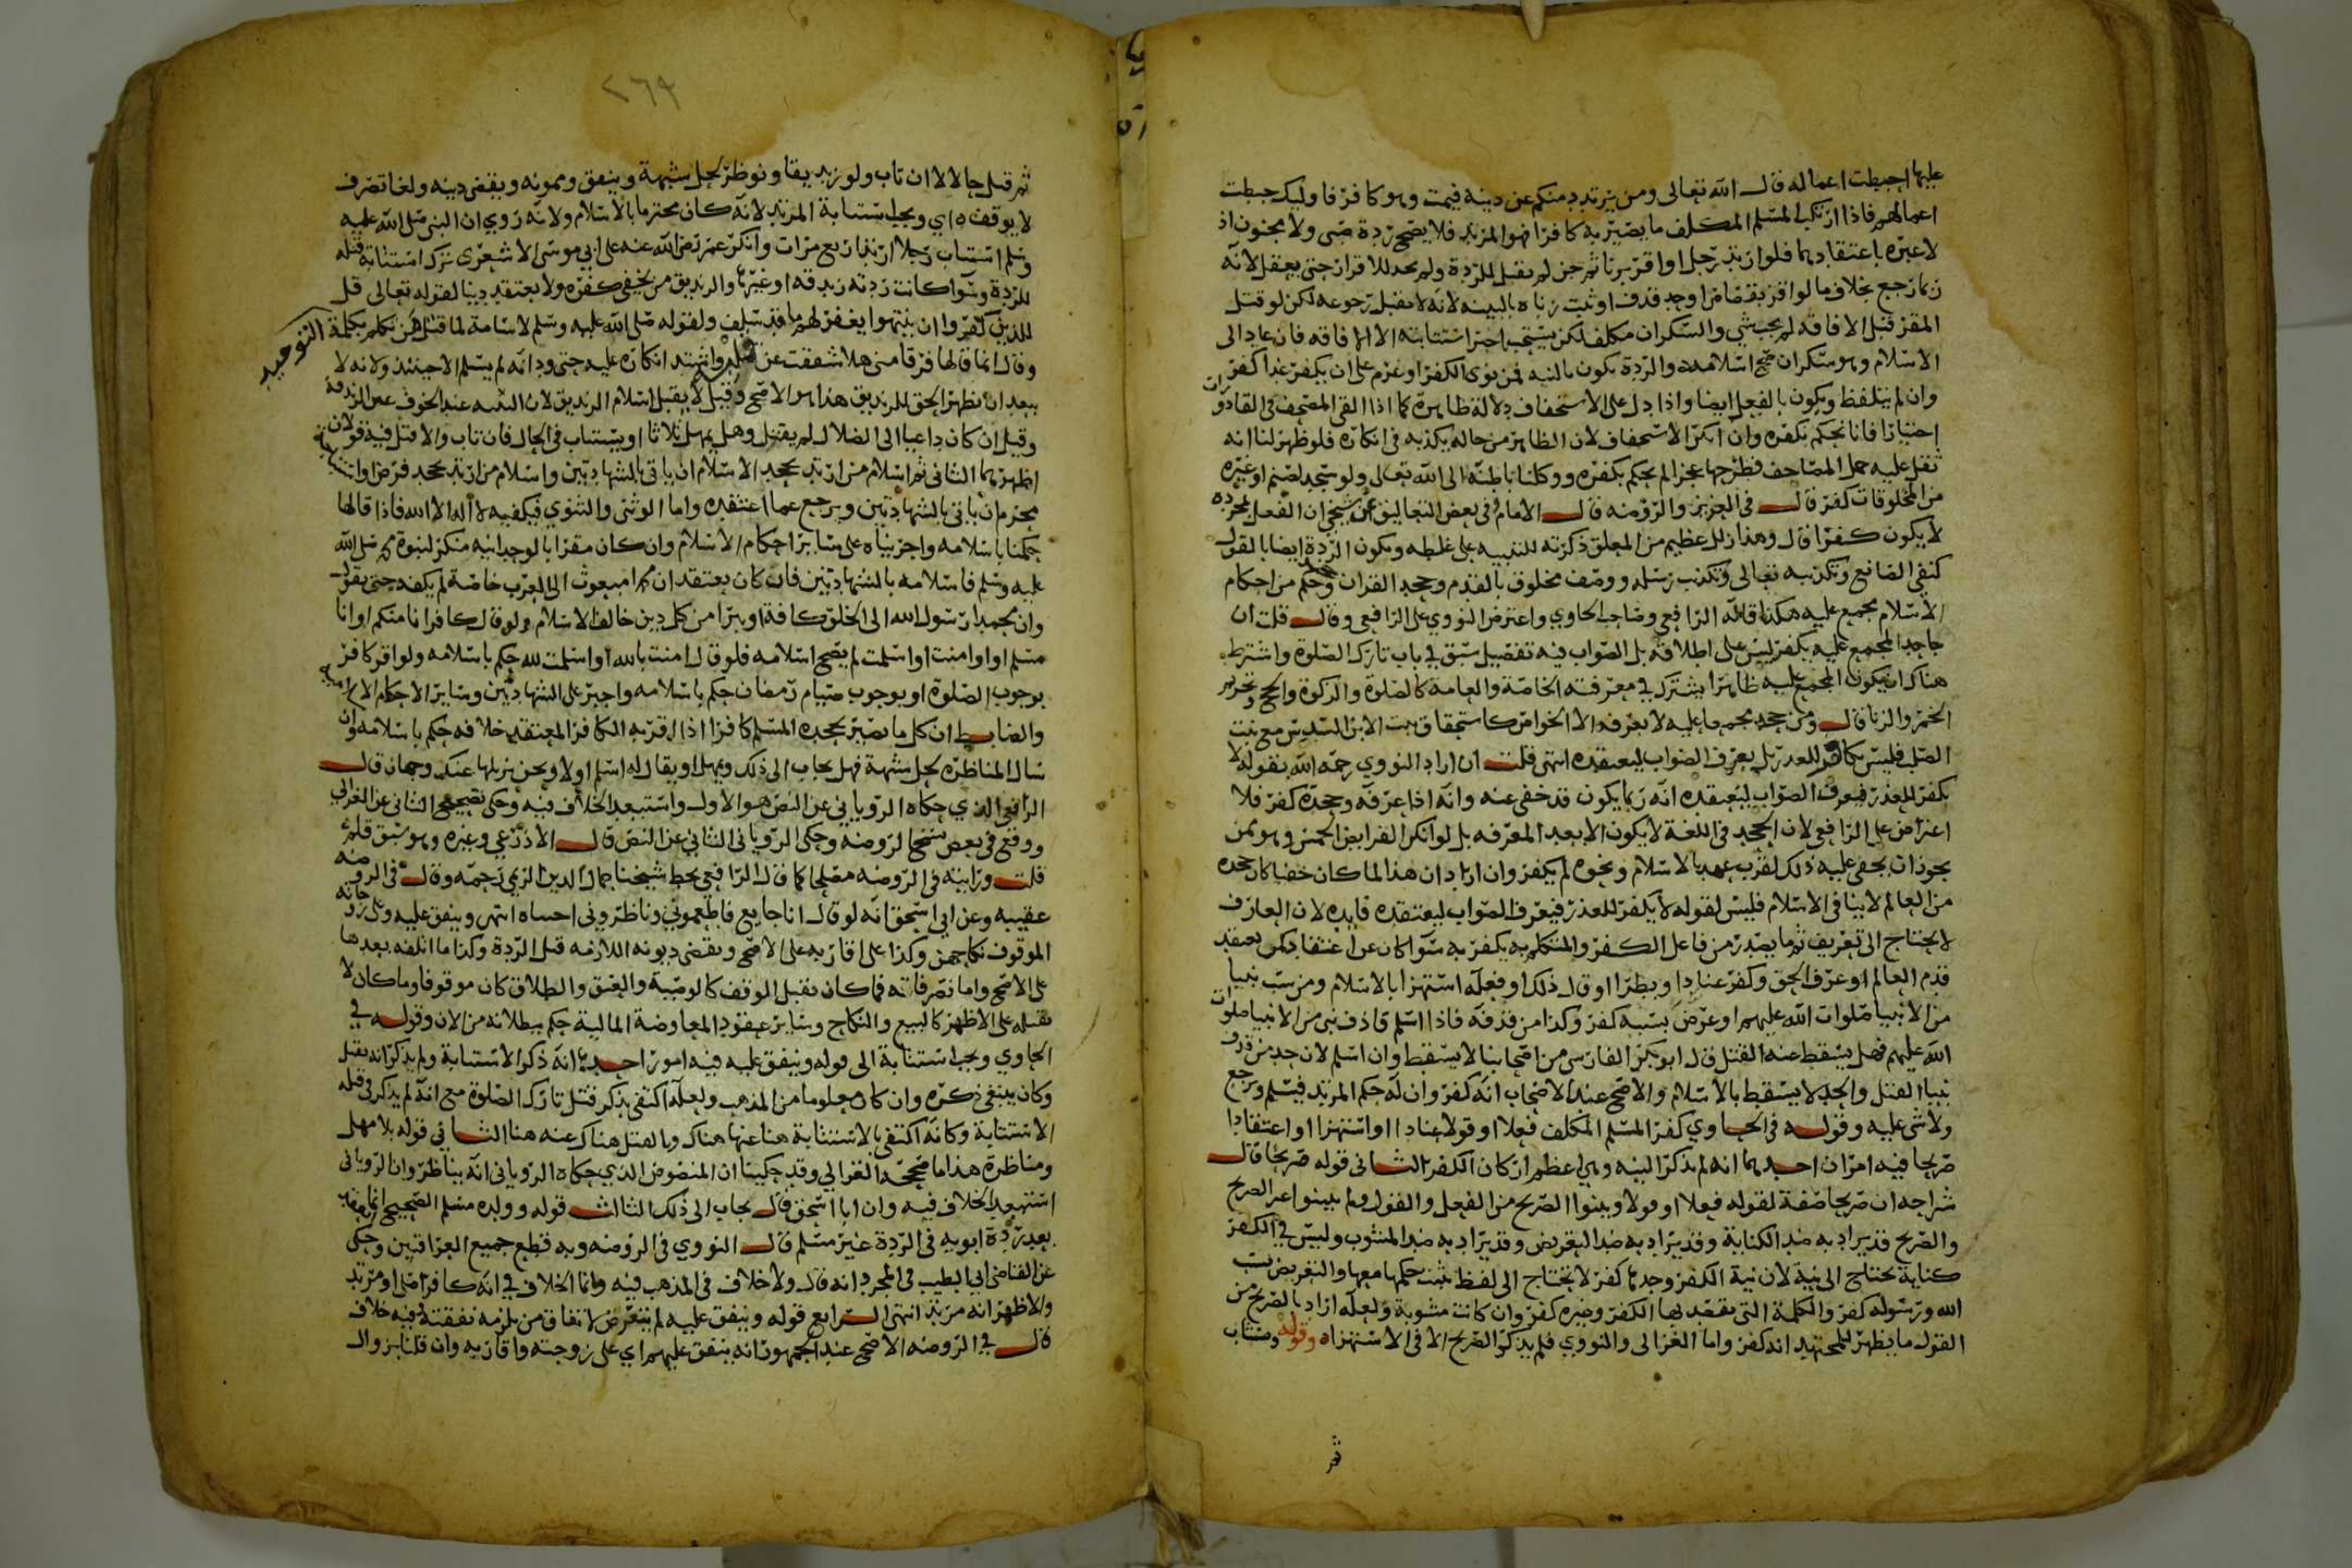 عليها احبطت اعماله قال الله تعالى ومن يرتدد منكم عن دينه فيمت وهو كافر فاوليك حبطت
اعمالهم فاذا ارتكب المسلم المكلف ما يصير به كافرا فهو المرتد فلا يصح ردة صبى ولا مجنون اذ
لا عبرة باعتقادهما فلو ارتد رجل او اقر بزنا ثم جن لم يقتل للردة ولم يحد للاقرار حتى يعقل لانه
ربما رجع بخلاف ما لو اقر بقصاص او حد قذف او ثبت زناه بالبينه لانه لا يقبل رجوعه لكن لو قتل
المقر قبل الافاقه لم يجب شي والسكران مكلف لكن يستحب استتابته الا الى افاقه فان عاد الى
الاسلام وهو سكران صح اسلامه والردة يكون بالنيه فمن نوى الكفر او عزم على ان يكفر غدا كفر
وان لم يتلفظ ويكون بالفعل ايضا واذا دل على الاستخفاف دلالة ظاهرة كما اذا القى المصحف فى القاذورات
اختيارا فانا نحكم بكفره وان انكر الاستخفاف لان الظاهر من حاله يكذبه فى انكاره فلو ظهر لنا انه
ثقل عليه حمل المصاحف فطرحها عجزا لم يحكم بكفره ووكلنا باطنه الى الله تعالى ولو سجد لصنم او غيره
من المخلوقات كفر قال فى العزيز والروضه قال الامام وفى بعض التعاليق عن شيخى ان الفعل بمجرده
لا يكون كفرا قال وهذا زلل عظيم من المعلق ذكرته للتنبيه على غلطه ويكون الردة ايضا بالقول
كنفى الصانع وتكذيبه تعالى وتكذيب رسله ووصف مخلوق بالقدم وجحد القران وجحد حكم من احكام
الاسلام مجمع عليه هكذا قاله الرافعي وصاحب الحاوي واعترض النووي على الرافعى وقال قلت ان
جاحد المجمع عليه يكفر ليس على اطلاقه بل الصواب فيه تفصيل سبق في باب تارك الصلوة واشترط
هناك ان يكون المجمع عليه ظاهرا يشترك في معرفته الخاصة والعامة كالصلوة والزكوة والحج وتحريم
الخمر والزنا قال ومن جحد مجمعا عليه لا يعرفه الا الخواص كاستحقاق بنت الابن السدس مع بنت
الصلب فليس بكافر للعذر بل يعرف الصواب ليعتقده انتهى قلت ان اراد النووي رحمه الله بقوله لا
يكفر للعذر فيعرف الصواب ليعتقده انه ربما يكون قد خفى عنه وانه اذا عرفه وجحده كفر فلا
اعتراض على الرافعي لان الجحد فى اللغة لا يكون الا بعد المعرفه بل لو انكر الفرايض الخمس وهو ممن
يجوز ان يخفى عليه ذلك لقرب عهده بالاسلام ونحوه لم يكفر وان اراد ان هذا لما كان خفيا كان جحده
من العالم لا ينافى الاسلام فليس لقوله لا يكفر للعذر فيعرف الصواب ليعتقده فايده لان العارف
لا يحتاج الى تعريف ثم ما يصدر من فاعل الكفر والمتكلم به يكفر به سوا كان عن اعتقاد كمن يعتقد
قدم العالم او عرف الحق وكفر عنادا وبطرا او قال ذلك او فعله استهزا بالاسلام ومن سب نبيا
من الانبيا صلوات الله عليهم او عرض بسبه كفر وكذا من قذفه فاذا اسلم قاذف نبى من الانبيا صلوات
الله عليهم فهل يسقط عنه القتل قال ابو بكر الفارسى من اصحابنا لا يسقط وان اسلم لان حد من قذف
نبيا القتل والحد لا يسقط بالاسلام والاصح عند الاصحاب انه كفر وان له حكم المرتد فيسلم ورجع
ولا شى عليه وقوله فى الحاوي كفر المسلم المكلف فعلا او قولا عنادا او استهزا او اعتقادا
صريحا فيه امران احدهما انه لم يذكر النيه وهى اعظم اركان الكفر الثانى قوله صريحا قال
شراحه ان صريحا صفة لقوله فعلا او قولا وبينوا الصريح من الفعل والقول ولم يبينوا غير الصريح
والصريح قد يراد به ضد الكناية وقد يراد به ضد التعريض وقد يراد به ضد المشوب وليس في الكفر
كناية يحتاج الى نية لان نية الكفر وحدها كفر لا يحتاج الى لفظ يثبت حكمها معها والتعريض بسب
الله ورسوله كفر والكلمة التى يقصد بها الكفر وغيره كفر وان كانت مشوبة ولعله اراد بالصريح من
القول ما يظهر للمجتهد انه كفر واما الغزالى والنووي فلم يذكرا الصريح الا فى الاستهزاه وقوله ويستتاب
ثم
٢٦٩
ثم قتل حالا لا ان تاب ولو زنديقا ونوظر لحل شبهة وينفق ويمونه ويقضى دينه ولغا تصرف
لا يوقف ه اي ويجب استتابة المرتد لانه كان محترما بالاسلام ولانه روي ان النبى صلى الله عليه
وسلم استتاب رجلا ارتد اربع مرات وانكر عمر رضى الله عنه على ابي موسى الاشعرى ترك استتابة قتله
للردة وسوا كانت ردته زندقه او غيرها والزنديق من يخفى كفره ولا يعتقد دينا لقوله تعالى قل
للذين كفروا ان ينتهوا يغفر لهم ما قد سلف ولقوله صلى الله عليه وسلم لاسامة لما قتل من تكلم بكلمة التوحيد
وقال انما قالها فرقا منى هلا شققت عن قلبه واشتد انكاره عليه حتى ود انه لم يسلم الا حينئذ ولانه لا
يبعد ان يظهر الحق للزنديق هذا هو الاصح وقيل لا يقبل اسلام الزنديق لان التقيه عند الخوف عين الزندقة
وقيل ان كان داعيا الى الضلال لم يقتل وهل يمهل ثلاثا او يستتاب فى الحال فان تاب والا قتل فيه قولان
اظهرهما الثانى ثم اسلام من ارتد بجحد الاسلام ان ياتى بالشهادتين واسلام من ارتد بجحد فرض او استباحة
محرم ان ياتى بالشهادتين ويرجع عما اعتقده واما الوثنى والثنوي فيكفيه لا اله الا الله فاذا قالها
حكمنا باسلامه واجريناه على ساير احكام الاسلام وان كان مقرا بالوحدانيه منكرا لنبوة محمد صلى الله
عليه وسلم فاسلامه بالشهادتين فان كان يعتقد ان محمدا مبعوث الى العرب خاصة لم يكفه حتى يقول
وان محمدا رسول الله الى الخلق كافة او يبرا من كل دين خالف الاسلام ولو قال كافر انا منكم او انا
مسلم او اوامنت او اسلمت لم يصح اسلامه فلو قال امنت بالله او اسلمت لله حكم باسلامه ولو اقر كافر
بوجوب الصلوة او بوجوب صيام رمضان حكم باسلامه واجبر على الشهادتين وساير الاحكام الاسلامية
والضابط ان كل ما يصير بجحده المسلم كافرا اذا اقر به الكافر المعتقد خلافه حكم باسلامه وان
سال المناظره لحل شبهة فهل يجاب الى ذلك ويمهل او يقال له اسلم اولا ونحن نزيلها عنك وجهان قال
الرافعى الذي حكاه الروياني عن النص هو الاول واستبعد الخلاف فيه وحكى تصحيح الثانى عن الغزالي
ووقع فى بعض نسخ الروضه وحكى الرويانى الثاني عن النص قال الاذرعي وغيره وهو سبق قلم
قلت ورايته فى الروضه مصلحا كما قال الرافعى بخط شيخنا جمال الدين الريمي رحمه وقال فى الروضه
عقيبه وعن ابي اسحق انه لو قال انا جايع فاطعموني وناظروني اجبناه انتهى وينفق عليه وعلى زوجاته
الموقوف نكاحهن وكذا على اقاربه على الاصح ويقضى ديونه اللازمه قبل الردة وكذا ما اتلفه بعدها
على الاصح واما تصرفاته فما كان يقبل الوقف كالوصية والعتق والطلاق كان موقوفا وما كان لا
يقبله على الاظهر كالبيع والنكاح وساير عقود المعاوضة المالية حكم ببطلانه من الان وقوله في
الحاوي ويجب استتابة الى قوله وينفق عليه فيه امور احدها انه ذكر الاستتابة ولم يذكر انه يقتل
وكان ينبغى ذكره وان كان معلوما من المذهب ولعله اكتفى بذكر قتل تارك الصلوة مع انه لم يذكر فى قتله
الاستتابة وكانه اكتفى بالاستتابة هنا عنها هناك وبالقتل هناك عنه هنا الثاني قوله بلا مهل
ومناظرة هذا ما صححه الغزالي وقد حكينا ان المنصوص الذي حكاه الروياني انه يناظر وان الرويانى
استبعد الخلاف فيه وان ابا اسحق قال يجاب الى ذلك الثالث قوله وولده مسلم الصحيح
بعد ردة ابويه فى الردة غير مسلم قال النووي فى الروضه وبه قطع جميع العراقيين وحكى
عن القاضى ابي الطيب فى المجرد انه قال ولا خلاف فى المذهب فيه وانما الخلاف في انه كافر اصلى او مرتد
والاظهر انه مرتد انتهى الرابع قوله وينفق عليه لم يتعرض لانفاق من يلزمه نفقته وفيه خلاف
قال في الروضه الاصح عند الجمهور انه ينفق عليهم اي على زوجته واقاربه وان قلنا بزوال